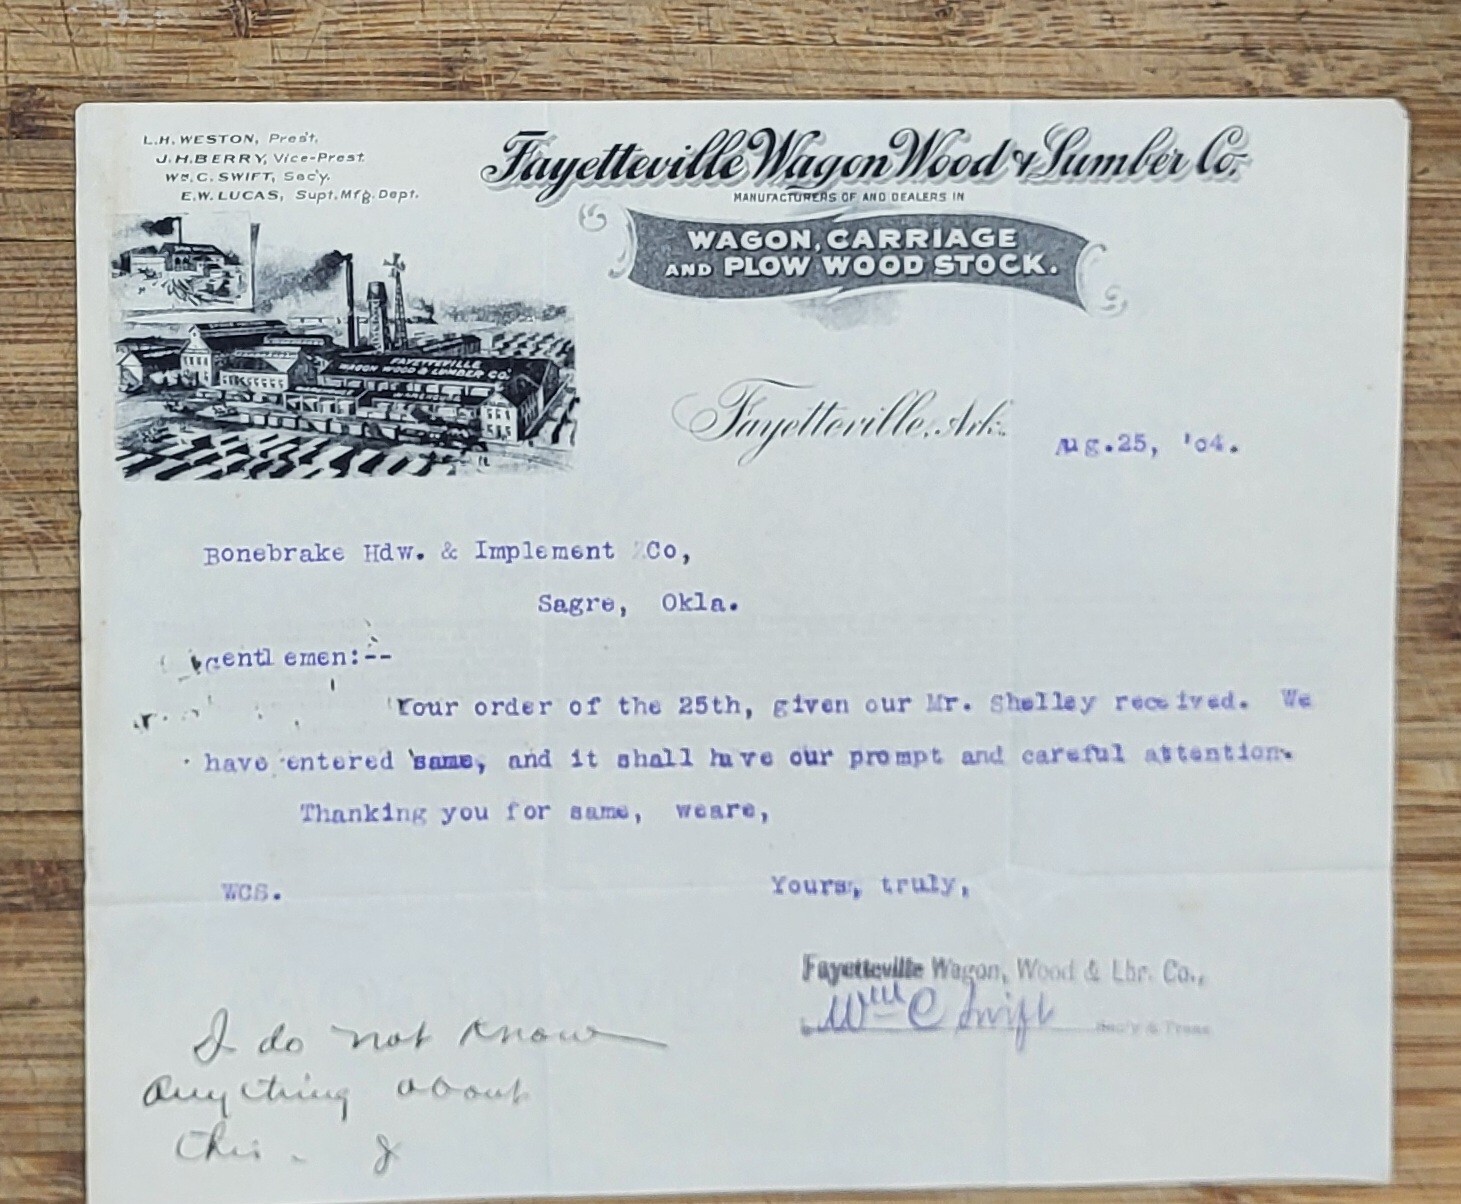 L.H. WESTON, Prest.
J.H. BERRY, Vice-Prest.
Wm. C. SWIFT, Sec'y.
E.W. LUCAS, Supt. Mfg. Dept.
Fayetteville Wagon Wood & Lumber Co.
MANUFACTURERS OF AND DEALERS IN
WAGON, CARRIAGE
AND PLOW WOOD STOCK.
FAYETTEVILLE
WAGON WOOD & LUMBER CO.
Fayetteville, Ark. Aug.25, '04.
Bonebrake Hdw. & Implement Co,
Sagre, Okla.
Gentlemen:--
Your order of the 25th, given our Mr. Shelley received. We
have entered same, and it shall have our prompt and careful attention.
Thanking you for same, weare,
WCS. Yours, truly,
Fayetteville Wagon, Wood & Lbr. Co.,
Wm C Swift Sec'y & Treas
I do not know
anything about
this. J